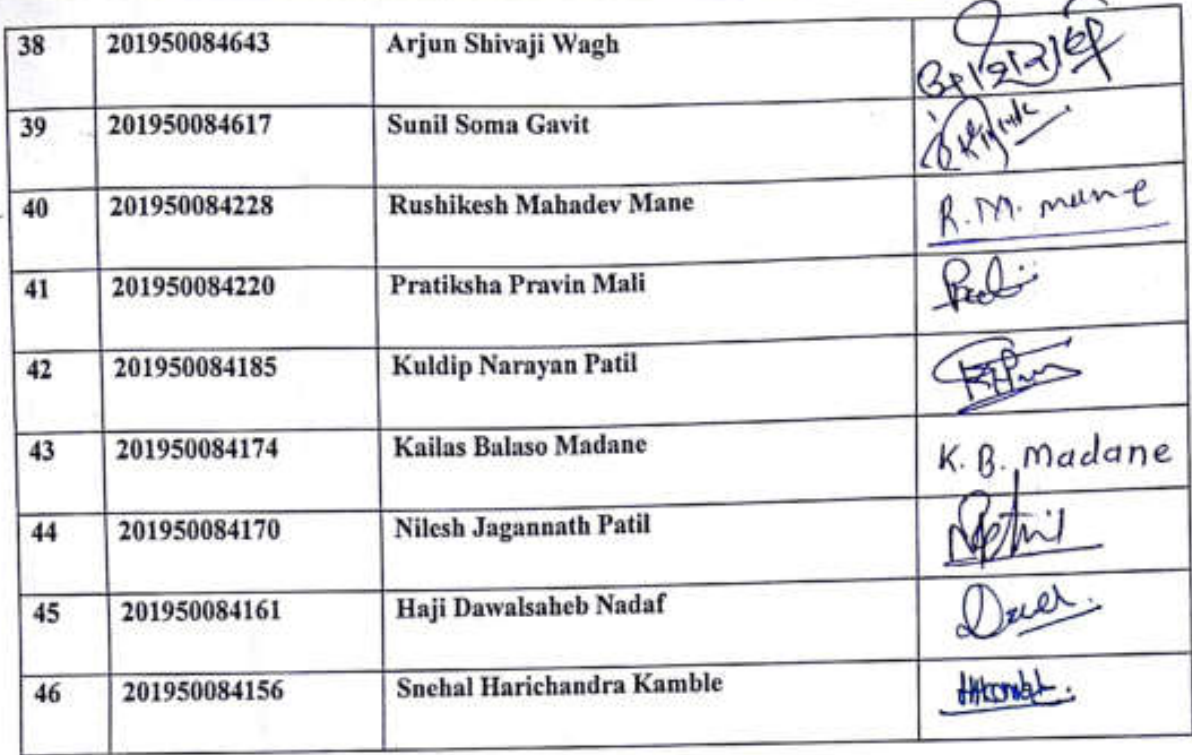 38 201950084643 Arjun Shivaji Wagh
39 201950084617 Sunil Soma Gavit
40 201950084228 Rushikesh Mahadev Mane R. M. mane
41 201950084220 Pratiksha Pravin Mali
42 201950084185 Kuldip Narayan Patil
43 201950084174 Kailas Balaso Madane K. B. Madane
44 201950084170 Nilesh Jagannath Patil
45 201950084161 Haji Dawalsaheb Nadaf
46 201950084156 Snehal Harichandra Kamble